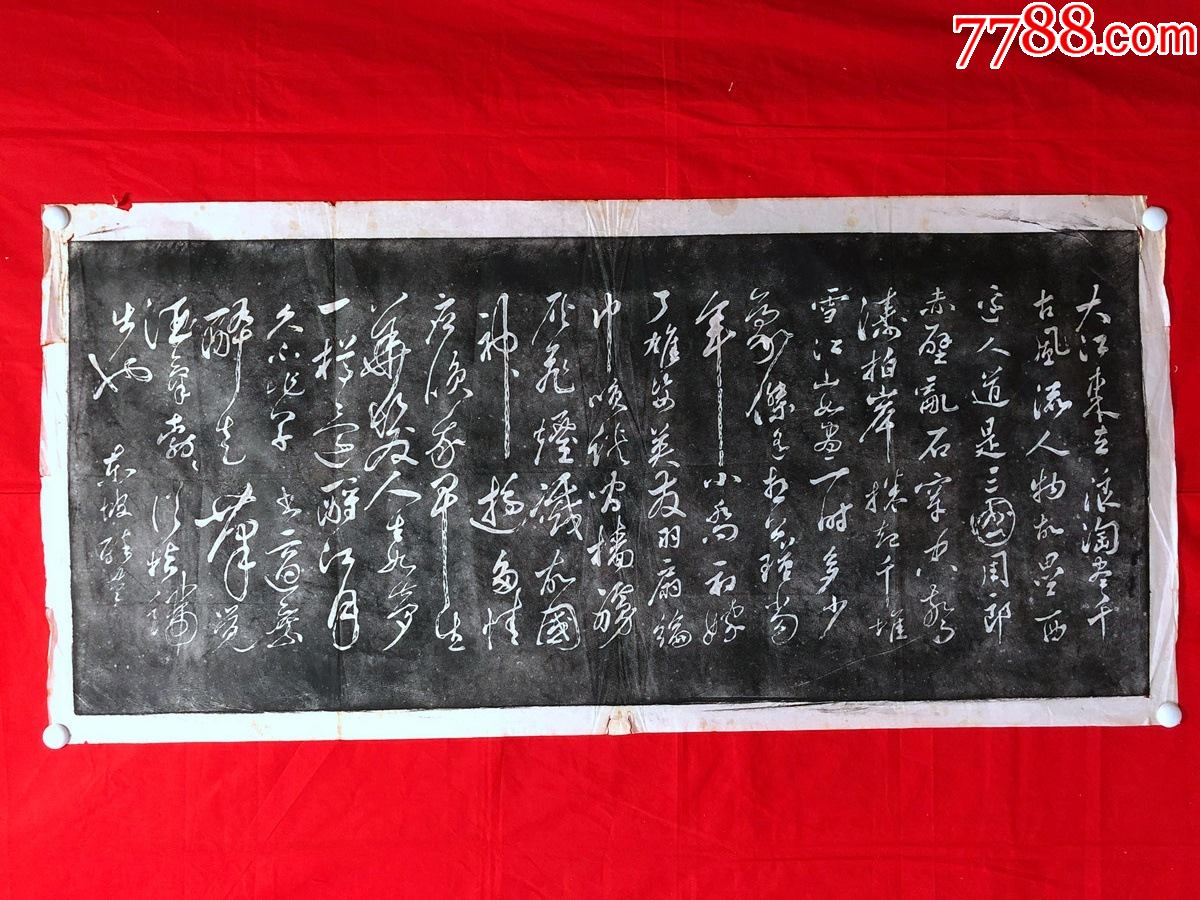 7788.com
大江東去浪淘盡千
古風流人物故壘西
邊人道是三國周郎
赤壁亂石穿空驚
濤拍岸捲起千堆
雪江山如畫一時多少
豪傑遙想公瑾當
年小喬初嫁
了雄姿英發羽扇綸
巾笑談間檣艣
灰飛煙滅故國
神遊多情
應笑我早生
華髮人生如夢
一樽還酹江月
久不作草書適乘
醉走筆覺
酒氣勃勃從指端
出也 東坡醉筆